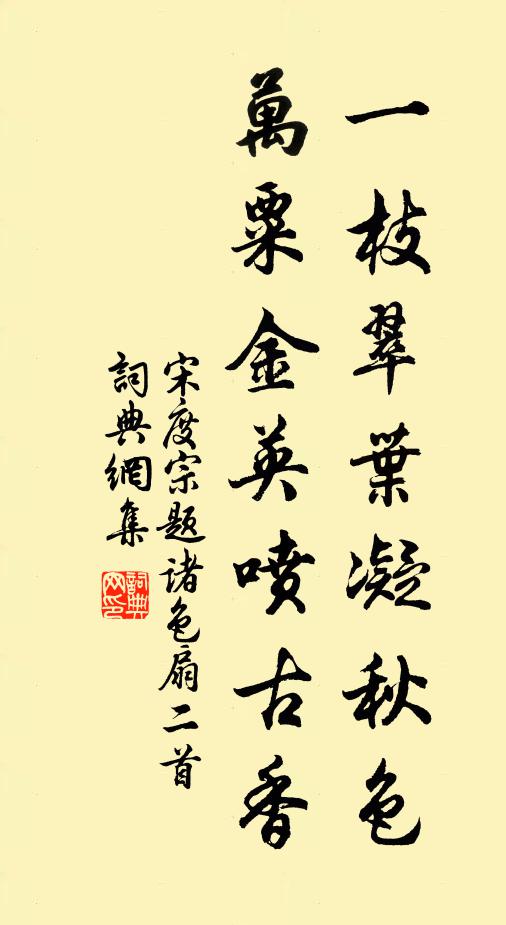 一枝翠葉凝秋色
萬粟金英噴古香
宋度宗题诸色扇二首
詞典網集
詞典网印